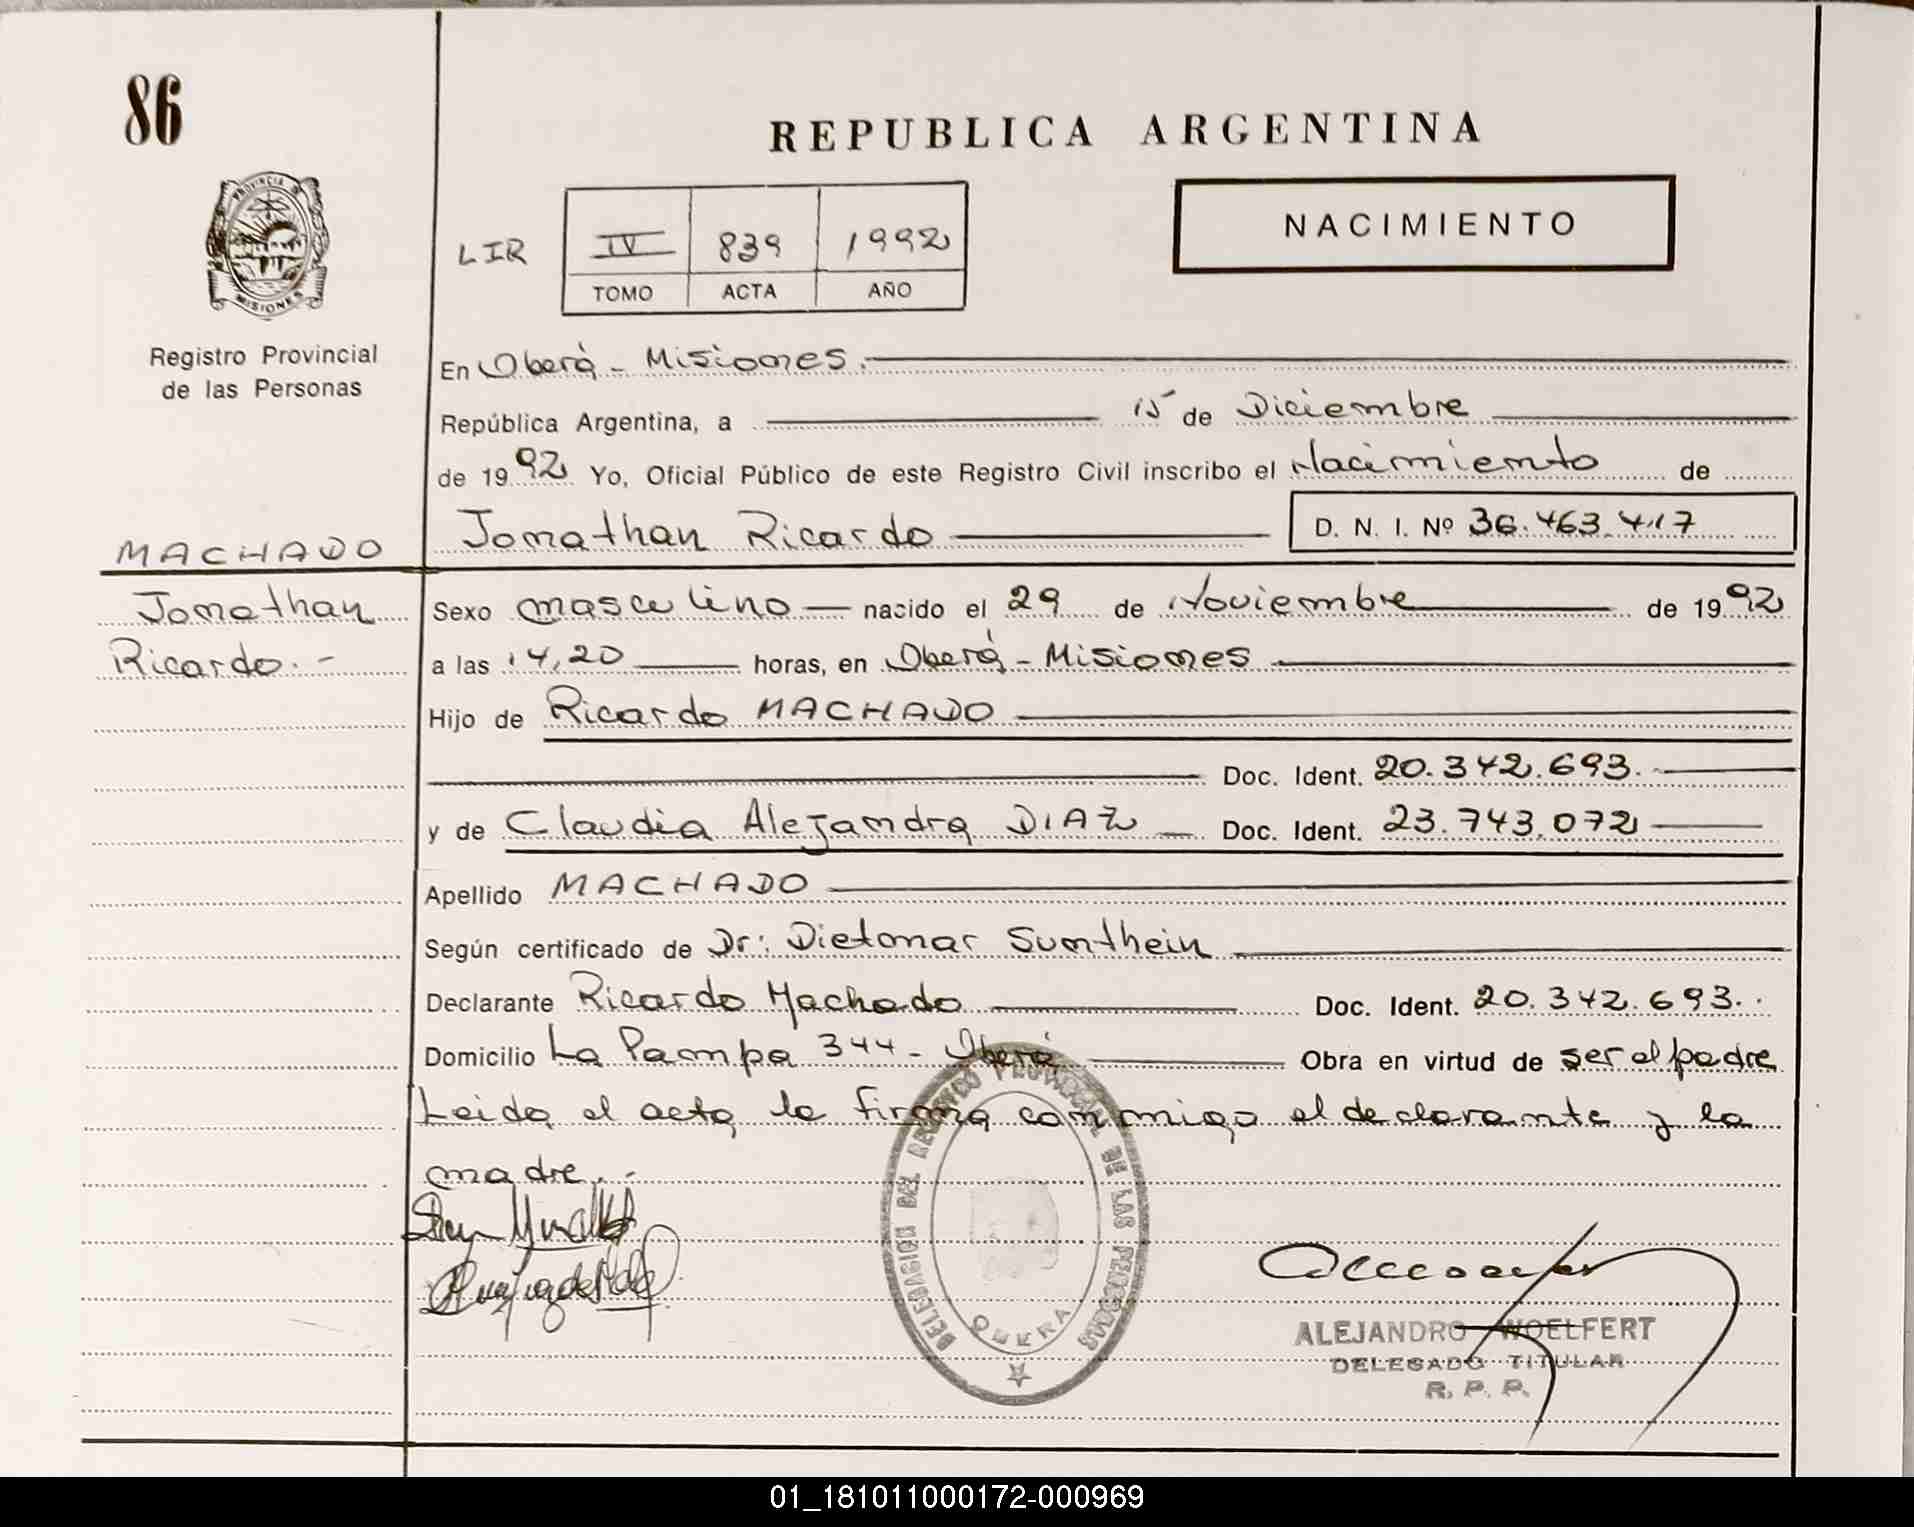 86
REPUBLICA ARGENTINA
PROVINCIA D MISIONES
NACIMIENTO
LIR IV 839 1992
TOMO ACTA AÑO
Registro Provincial
de las Personas
En Oberá - Misiones.
República Argentina, a 15 de Diciembre
de 1992 Yo, Oficial Público de este Registro Civil inscribo el Nacimiento de
Jonathan Ricardo D. N. I. Nº 36.463.417
MACHADO
Jonathan
Ricardo.-
Sexo masculino nacido el 29 de Noviembre de 1992
a las 14,20 horas, en Oberá - Misiones
Hijo de Ricardo MACHADO
Doc. Ident. 20.342.693.
y de Claudia Alejandra DIAZ Doc. Ident. 23.743.072
Apellido MACHADO
Según certificado de Dr: Dietomar Sumthein
Declarante Ricardo Machado Doc. Ident. 20.342.693.
Domicilio La Pampa 344 - Oberá Obra en virtud de ser el padre
Leida el acta la firma conmigo el declarante y la
madre.-
DELEGACION DEL REGISTRO PROVINCIAL DE LAS PERSONAS
OBERA
ALEJANDRO WOELFERT
DELEGADO TITULAR
R. P. P.
01_181011000172-000969